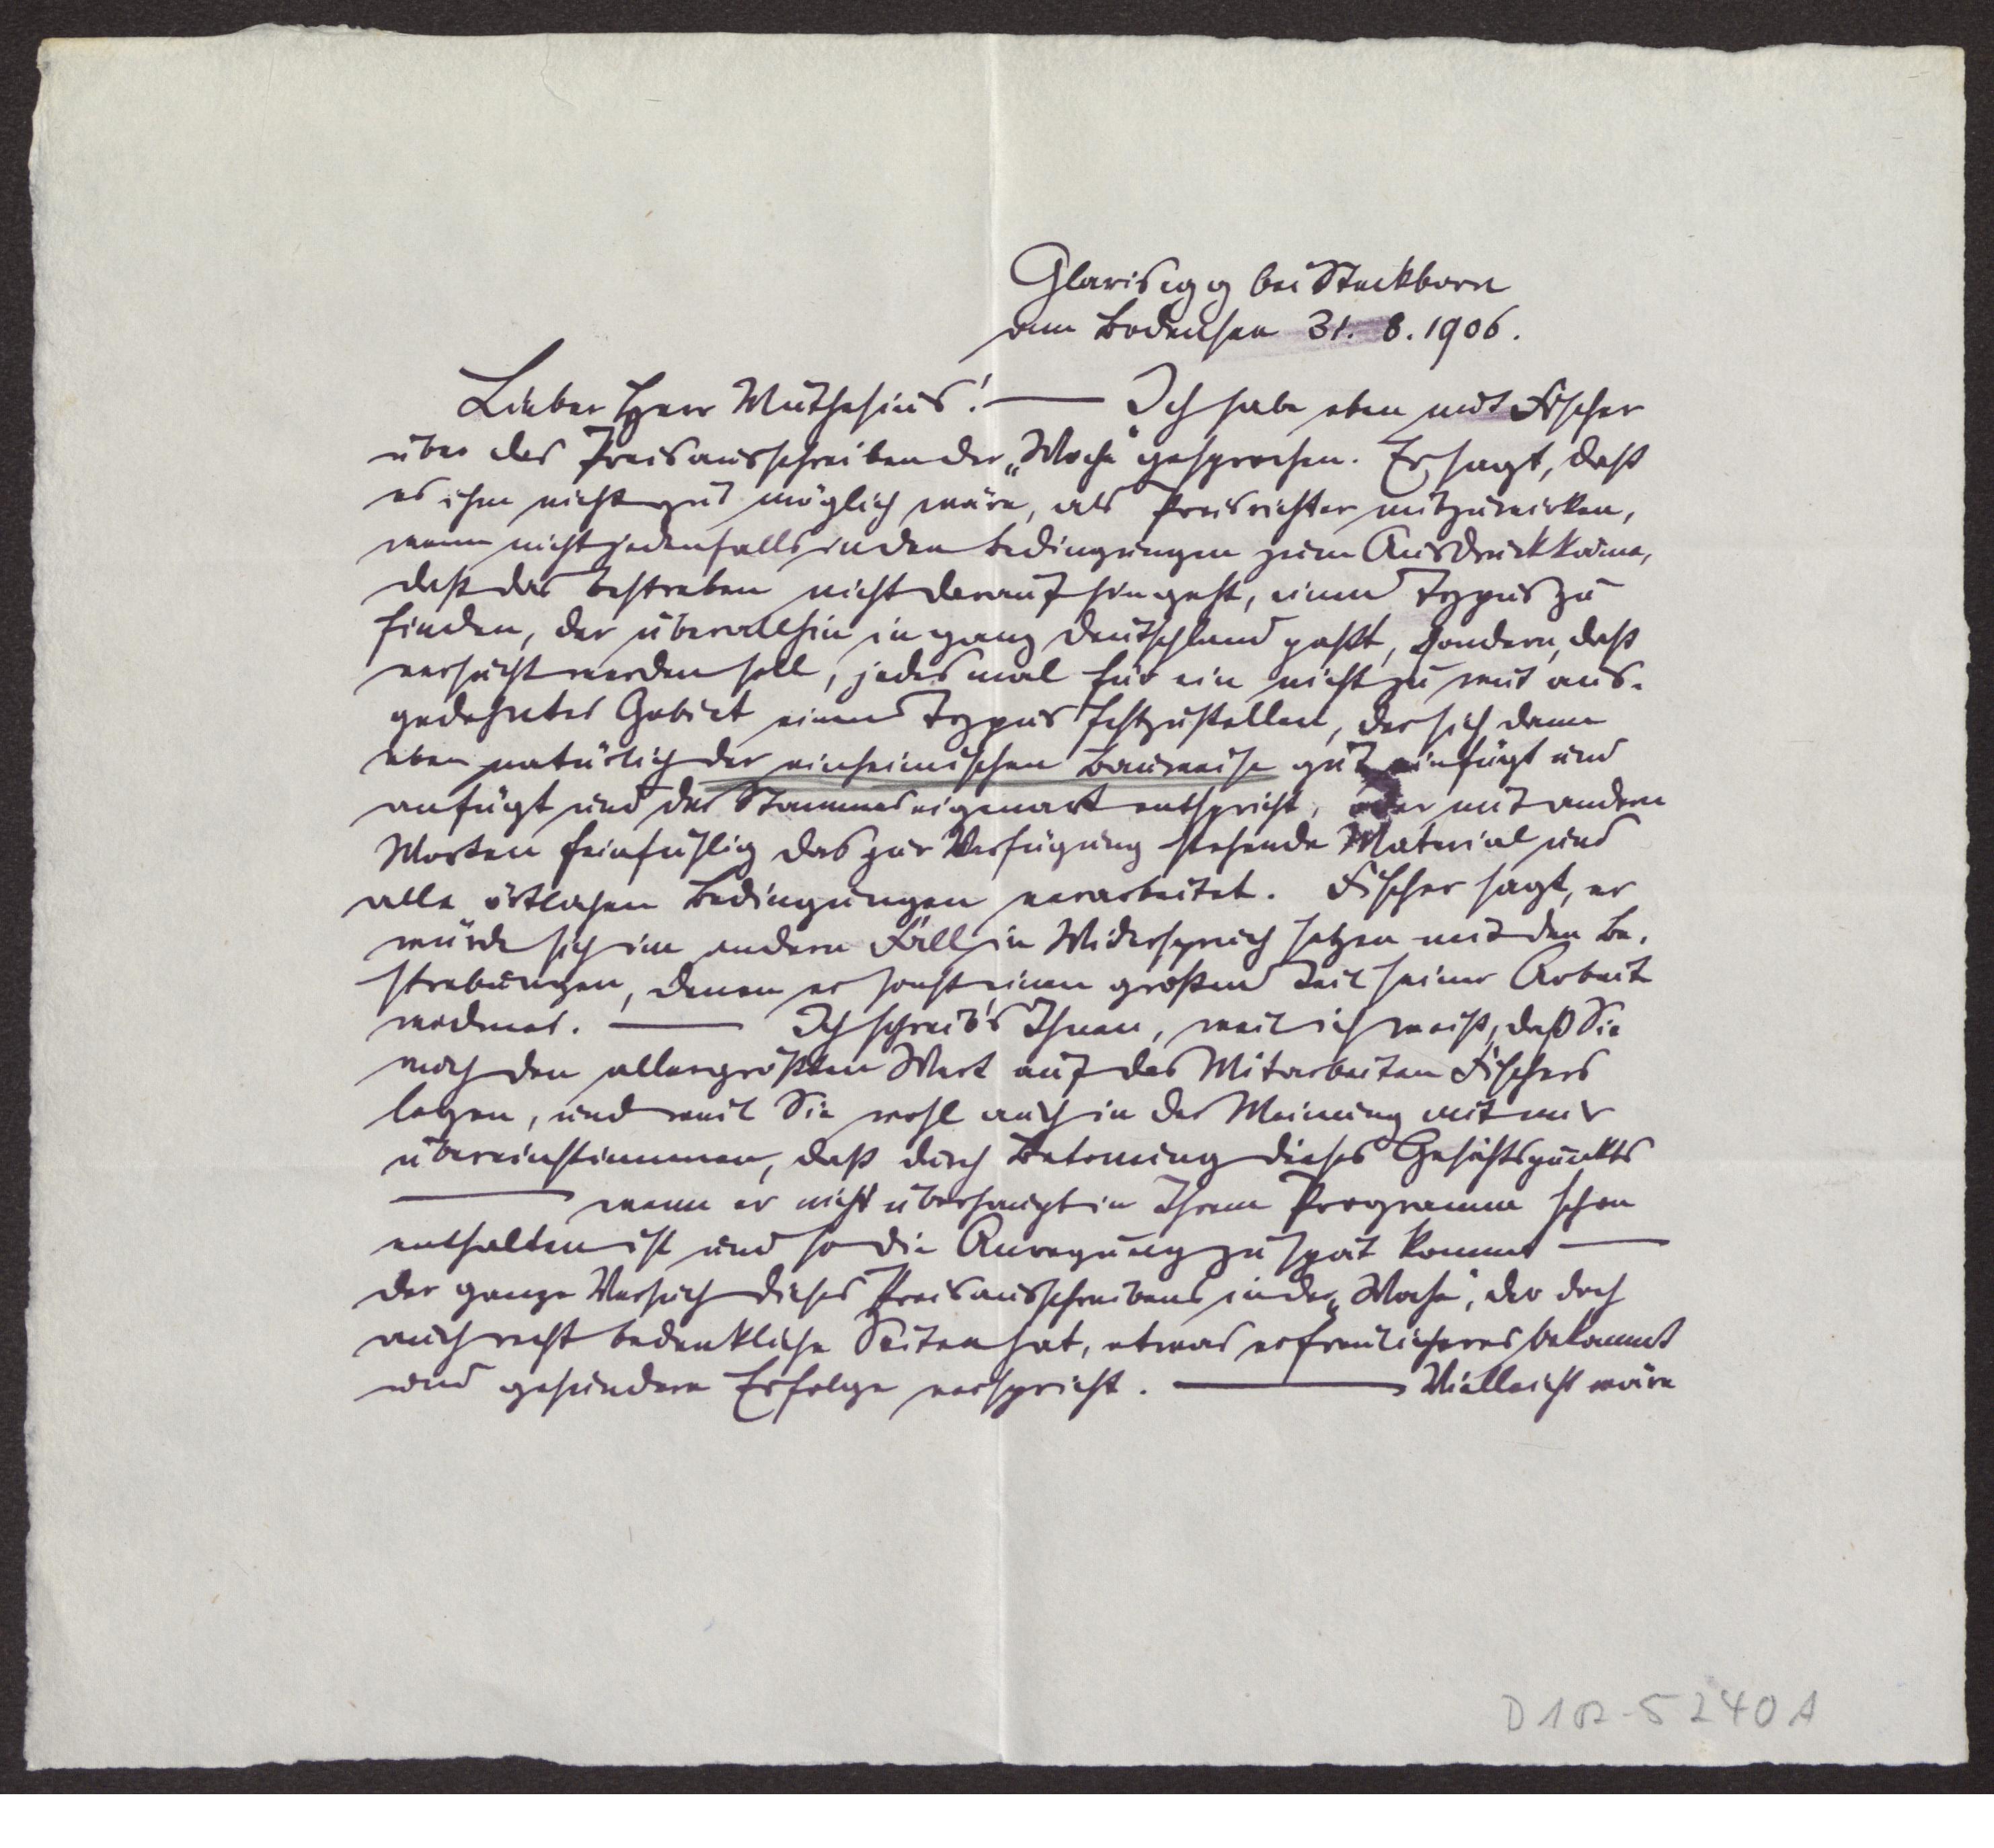 Glarisegg bei Steckborn
am Bodensee 31. 8. 1906.
Lieber Herr Muthesius! — Ich habe eben mit Fischer
über das Preisausschreiben der „Woche“ gesprochen. Er sagt, daß
es ihm nicht gut möglich wäre, als Preisrichter mitzuwirken,
wenn nicht jedenfalls in den Bedingungen zum Ausdruck käme,
daß das Bestreben nicht darauf hingeht, einen Typus zu
finden, der überallhin in ganz Deutschland paßt, sondern, daß
versucht werden soll, jedes mal für ein nicht zu weit aus-
gedehntes Gebiet einen Typus festzustellen, der sich dann
eben natürlich der einheimischen Bauweise gut einfügt und
anfügt und der Stammeseigenart entspricht, oder mit andern
Worten feinfühlig das zur Verfügung stehende Material und
alle örtlichen Bedingungen verarbeitet. Fischer sagt, er
würde sich im andern Fall in Widerspruch setzen mit den Be-
strebungen, denen er sonst einen großen Teil seiner Arbeit
widmet. — Ich schreib's Ihnen, weil ich weiß, daß Sie
noch den allergrößten Wert auf das Mitarbeiten Fischers
legen, und weil Sie wohl auch in der Meinung mit mir
übereinstimmen, daß durch Betonung dieses Gesichtspunkts
— wenn er nicht überhaupt in Ihrem Programm schon
enthalten ist und so die Anregung zu spät kommt —
der ganze Versuch dieses Preisausschreibens in der „Woche“, der doch
auch recht bedenkliche Seiten hat, etwas erfreulicheres bekommt
und gesündere Erfolge verspricht. — Vielleicht wäre
D 102-5240 A